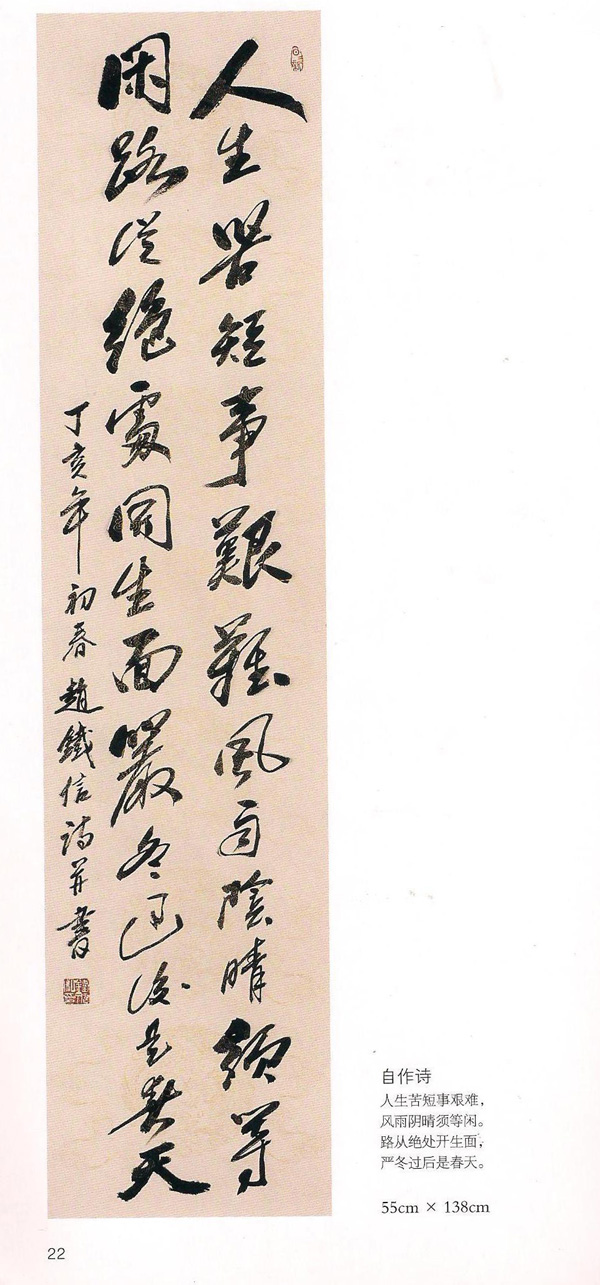 人生苦短事艱難風雨陰晴須等
閑路從絕處開生面嚴冬過後是春天
丁亥年初春趙鐵信詩并書
自作诗
人生苦短事艰难，
风雨阴晴须等闲。
路从绝处开生面，
严冬过后是春天。
55cm × 138cm
22